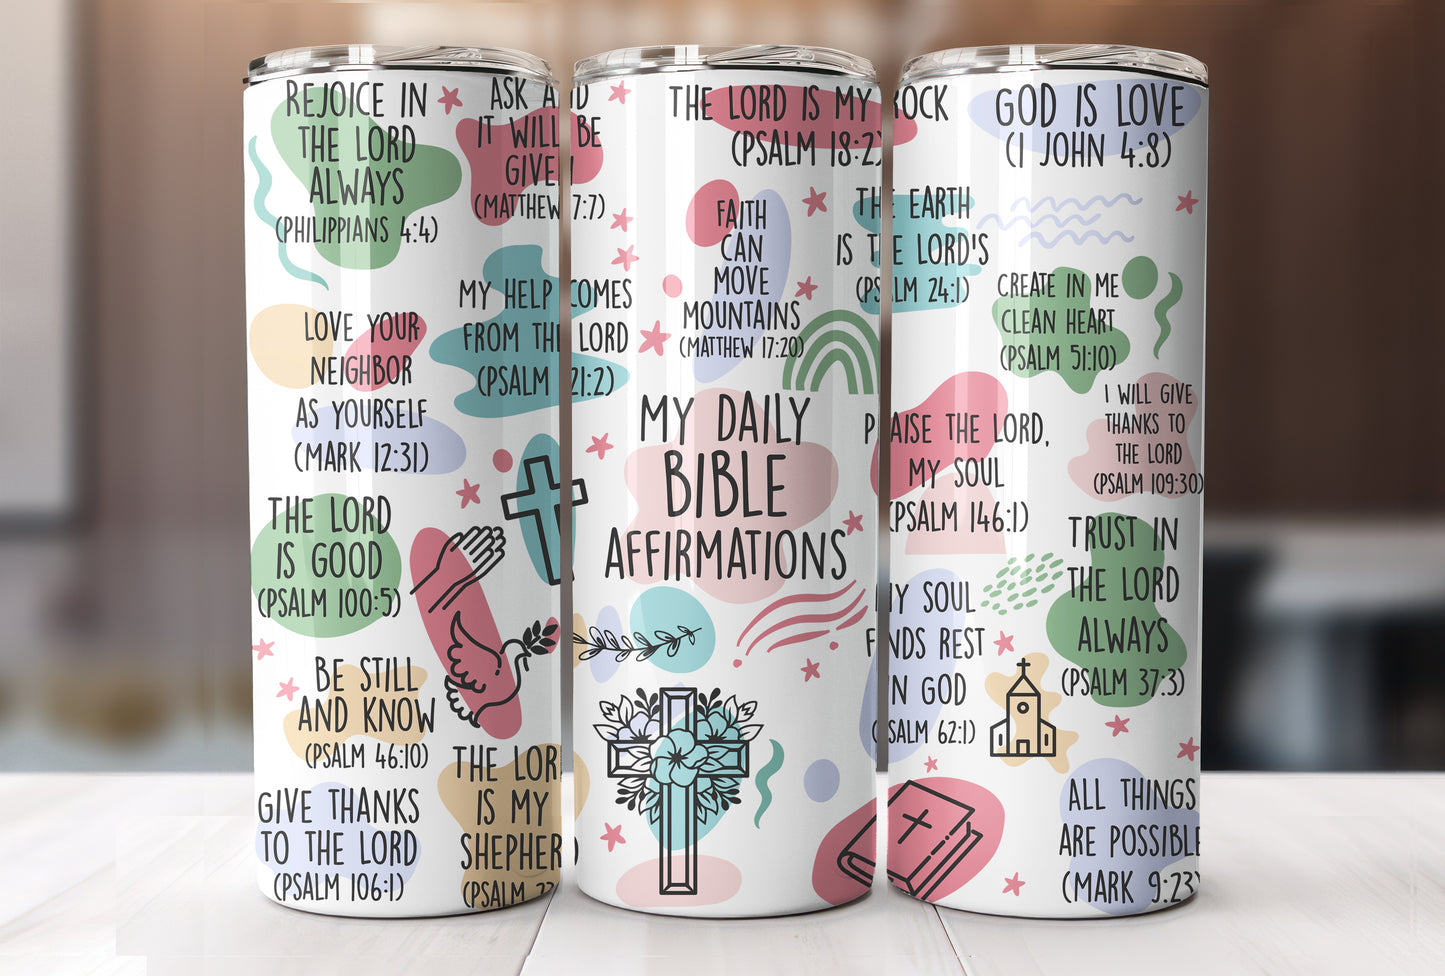 REJOICE IN
THE LORD
ALWAYS
(PHILIPPIANS 4:4)
ASK AND
IT WILL BE
GIVEN
(MATTHEW 7:7)
LOVE YOUR
NEIGHBOR
AS YOURSELF
(MARK 12:31)
MY HELP COMES
FROM THE LORD
(PSALM 21:2)
THE LORD
IS GOOD
(PSALM 100:5)
BE STILL
AND KNOW
(PSALM 46:10)
GIVE THANKS
TO THE LORD
(PSALM 106:1)
THE LORD
IS MY
SHEPHERD
(PSALM
THE LORD IS MY ROCK
(PSALM 18:2)
FAITH
CAN
MOVE
MOUNTAINS
(MATTHEW 17:20)
MY DAILY
BIBLE
AFFIRMATIONS
THE EARTH
IS THE LORD'S
(PSALM 24:1)
GOD IS LOVE
(1 JOHN 4:8)
CREATE IN ME
CLEAN HEART
(PSALM 51:10)
PRAISE THE LORD,
MY SOUL
(PSALM 146:1)
I WILL GIVE
THANKS TO
THE LORD
(PSALM 109:30)
MY SOUL
FINDS REST
IN GOD
(PSALM 62:1)
TRUST IN
THE LORD
ALWAYS
(PSALM 37:3)
ALL THINGS
ARE POSSIBLE
(MARK 9:23)